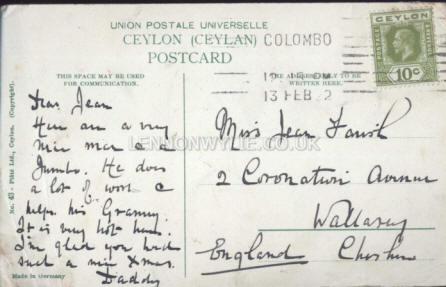 UNION POSTALE UNIVERSELLE
CEYLON (CEYLAN)
POSTCARD
COLOMBO
13 FEB 2
CEYLON
POSTAGE
10c
THIS SPACE MAY BE USED
FOR COMMUNICATION.
THE ADDRESS ONLY TO BE
WRITTEN HERE.
Dear Jean
Here are a very
nice man & a
Jumbo. He does
a lot of work &
helps his Granny.
It is very hot here.
I'm glad you had
such a nice Xmas.
Daddy
Miss Jean
2 Coronation Avenue
Wallasey
England Cheshire
LENNONWYLIE.CO.UK
No. 43 - Plâté Ltd., Ceylon. (Copyright).
Made in Germany